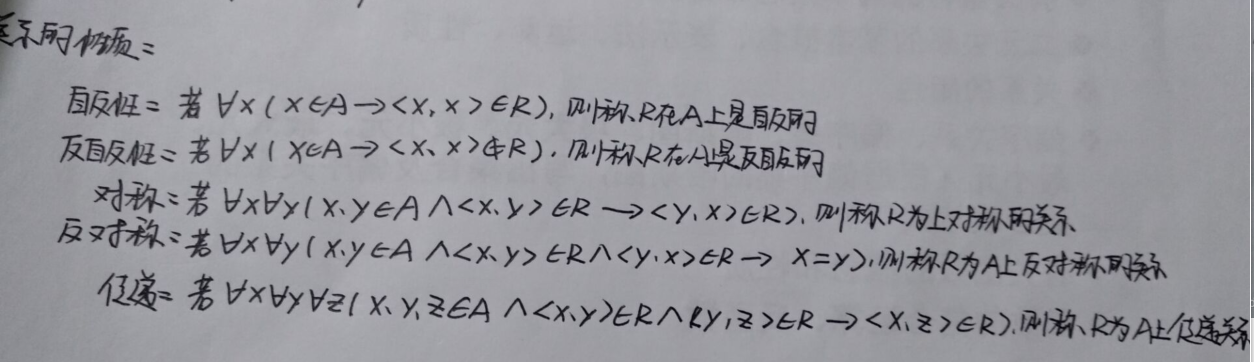 关系的性质:
自反性: 若 ∀x(x∈A→<x,x>∈R), 则称R在A上是自反的
反自反性: 若 ∀x(x∈A→<x、x>∉R), 则称R在A上是反自反的
对称: 若 ∀x∀y(x、y∈A∧<x、y>∈R→<y、x>∈R), 则称R为上对称的关系
反对称: 若 ∀x∀y(x、y∈A∧<x、y>∈R∧<y、x>∈R→x=y), 则称R为A上反对称的关系
传递: 若 ∀x∀y∀z(x、y,z∈A∧<x、y>∈R∧<y,z>∈R→<x、z>∈R), 则称R为A上传递关系